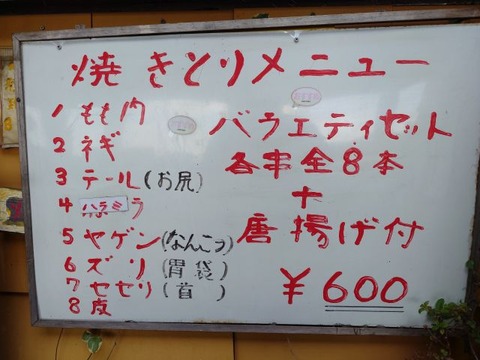 焼きとりメニュー
1 もも肉
2 ネギ
3 テール(お尻)
4 ハラミ
5 ヤゲン(なんこつ)
6 ズリ(胃袋)
7 セセリ(首)
8 皮
バラエティセット
各串全8本
+
唐揚げ付
¥600